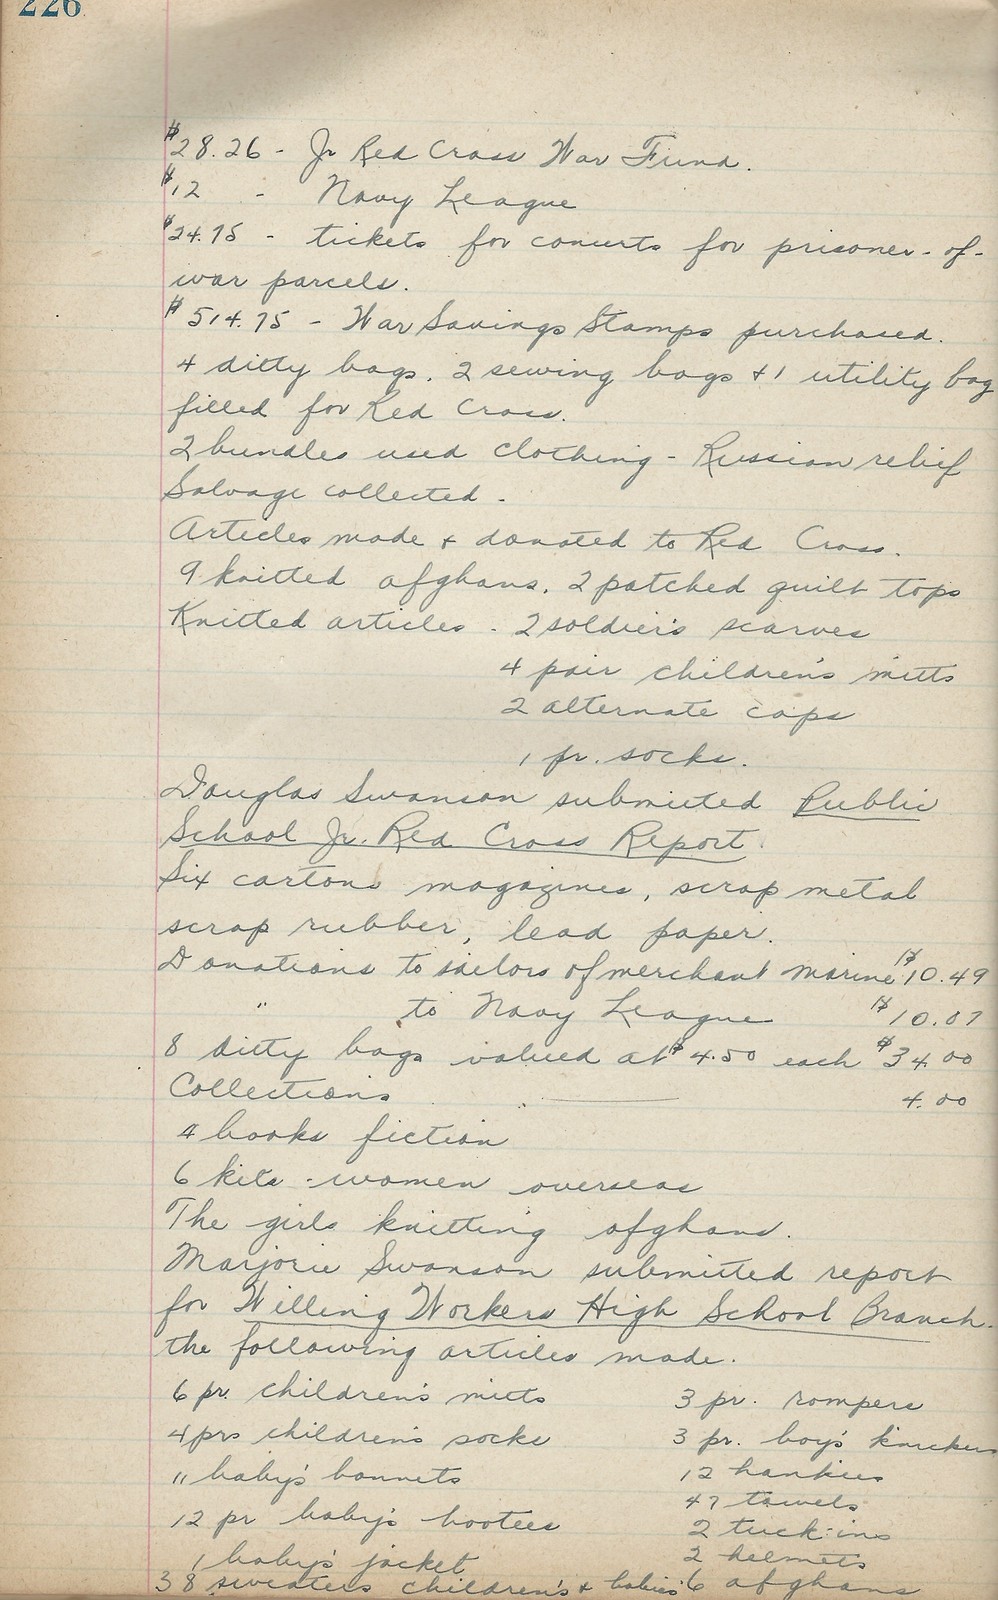 226
$28.26 - Jr Red Cross War Fund.
$12 - Navy League
$24.75 - tickets for concerts for prisoner-of-
war parcels.
$514.75 - War Savings Stamps purchased.
4 ditty bags. 2 sewing bags + 1 utility bag
filled for Red Cross.
2 bundles used clothing - Russian relief
Salvage collected.
Articles made + donated to Red Cross.
9 knitted afghans. 2 patched quilt tops
Knitted articles - 2 soldier's scarves
4 pair children's mitts
2 alternate caps
1 pr. socks.
Douglas Swanson submitted Public
School Jr. Red Cross Report.
Six cartons magazines, scrap metal
scrap rubber, lead paper.
Donations to sailors of merchant marine $10.49
" to Navy League $10.07
8 ditty bags valued at $4.50 each $34.00
Collections 4.00
4 books fiction
6 kits - women overseas
The girls knitting afghans.
Marjorie Swanson submitted report
for Willing Workers High School Branch.
the following articles made.
6 pr. children's mitts 3 pr. rompers
4 prs children's socks 3 pr. boy's knickers
11 baby's bonnets 12 hankies
47 towels
12 pr baby's bootees 2 tuck-ins
1 baby's jacket 2 helmets
38 sweaters children's + babies' 6 afghans